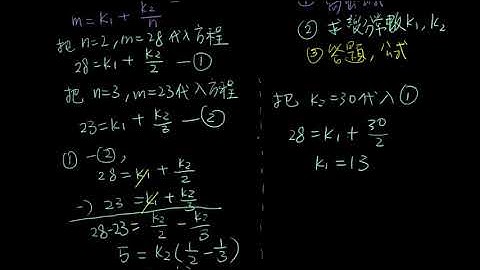 m = k₁ + k₂/n
把 n=2, m=28 代入方程
28 = k₁ + k₂/2 — ①
把 n=3, m=23 代入方程
23 = k₁ + k₂/3 — ②
① - ②,
28 = k₁ + k₂/2
-) 23 = k₁ + k₂/3
28-23 = k₂/2 - k₂/3
5 = k₂(1/2 - 1/3)
①
② 求變分常數 k₁, k₂
③ 答題, 公式
把 k₂=30 代入 ①
28 = k₁ + 30/2
k₁ = 13